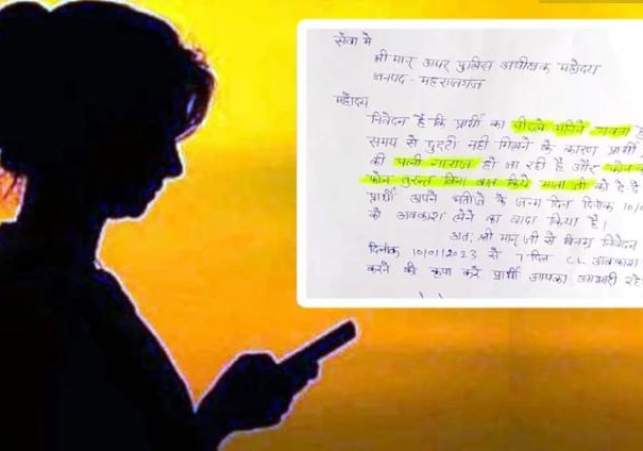 सेवा में
श्री मान् अपर पुलिस अधीक्षक महोदय
जनपद - महराजगंज
महोदय
निवेदन है कि प्रार्थी का पिछले महिने
समय से छुट्टी नही मिलने के कारण प्रार्थी
की पत्नी नाराज हो जा रही है और फोन
फोन तुरन्त बिना बात किये माता जी को दे दे
प्रार्थी अपने भतीजे के जन्म दिन दिनांक 10/0
को अवकाश लेने का वादा किया है।
अतः श्री मान् जी से विनम्र निवेदन
दिनांक 10/01/2023 से 7 दिन C L अवकाश
करने की कृपा करे प्रार्थी आपका आभारी रहे